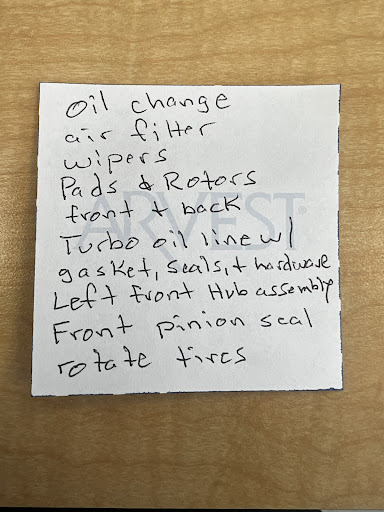 Oil change
air filter
wipers
Pads & Rotors
front + back
ARVEST
Turbo oil line w/
gasket, seals, + hardware
Left front Hub assembly
Front pinion seal
rotate tires